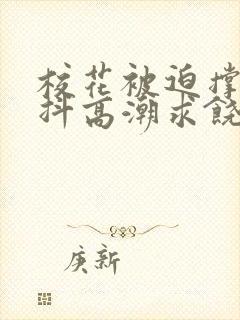 校花被迫撑
抖高潮求饶
庚新